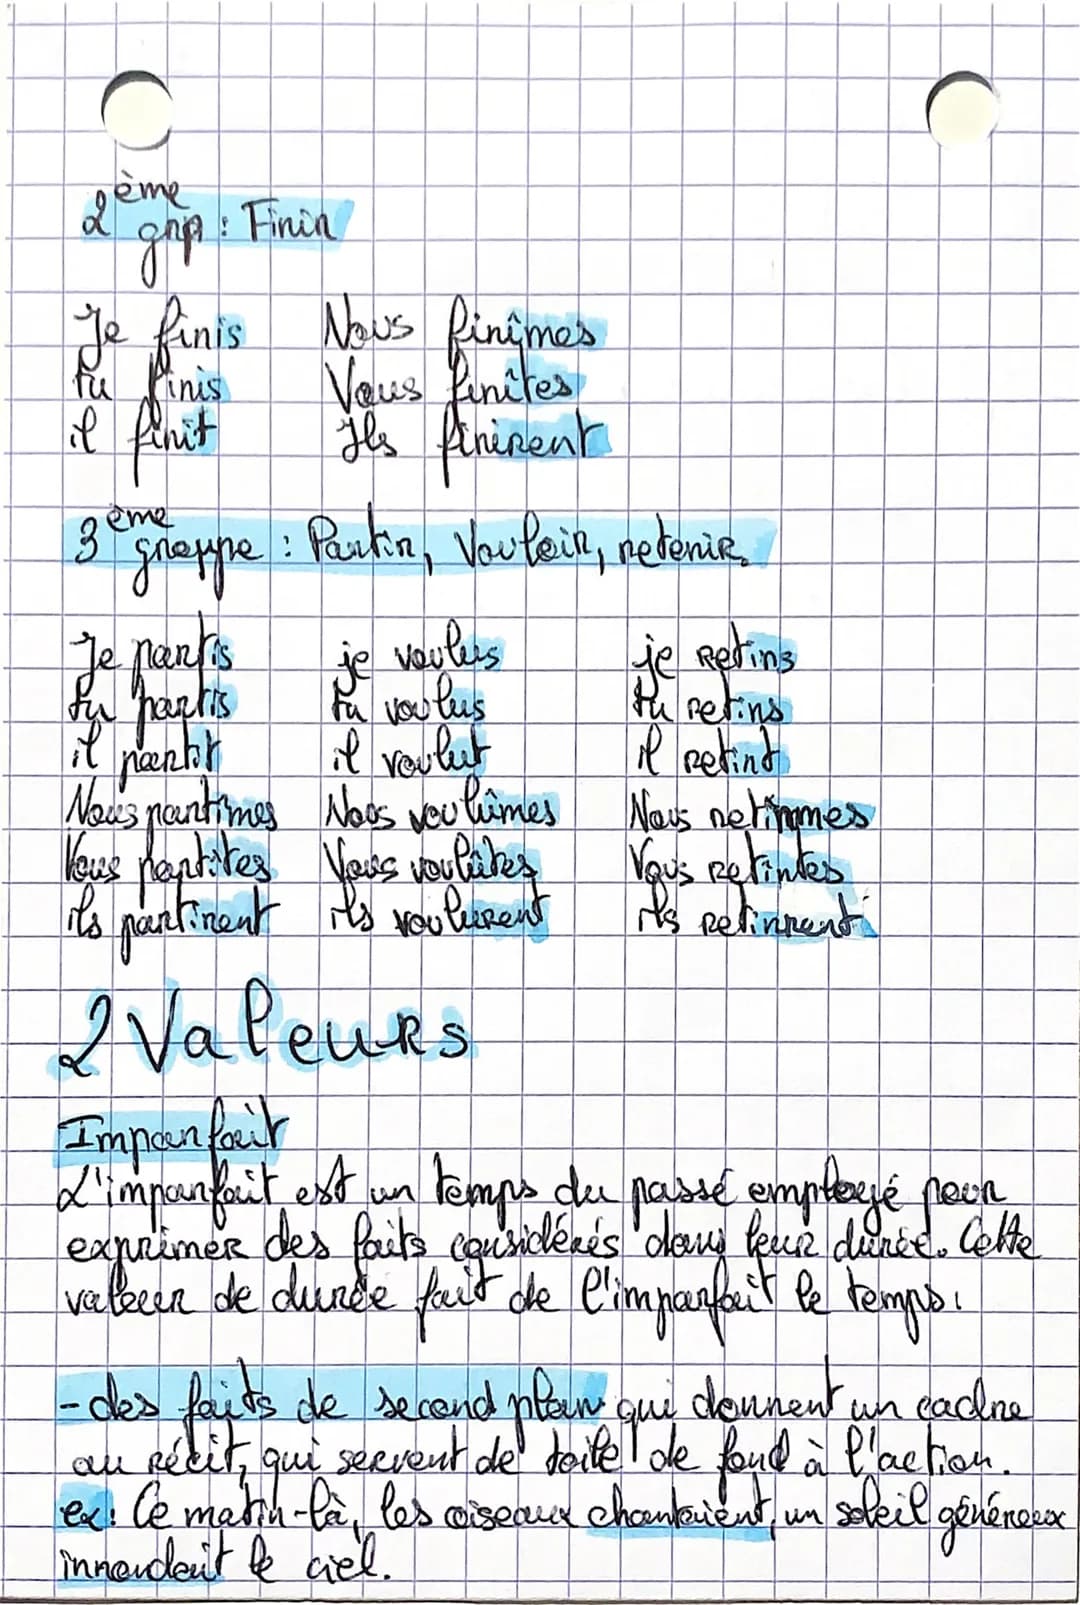 2ème grp : Finir
Je finis Nous finîmes
tu finis Vous finîtes
il finit Ils finirent
3ème groupe : Partir, Vouloir, retenir.
Je partis je voulus je retins
tu partis tu voulus tu retins
il partit il voulut il retint
Nous partîmes Nous voulûmes Nous retinmmes
Vous partites Vous voulûtes Vous retintes
ils partirent ils voulurent ils retinrent
2 Valeurs
Imparfait
L'imparfait est un temps du passé employé pour
exprimer des faits considérés dans leur durée. Cette
valeur de durée fait de l'imparfait le temps :
- des faits de second plan qui donnent un cadre
au récit, qui servent de toile de fond à l'action.
ex : Ce matin-là, les oiseaux chantaient, un soleil généreux
innondait le ciel.